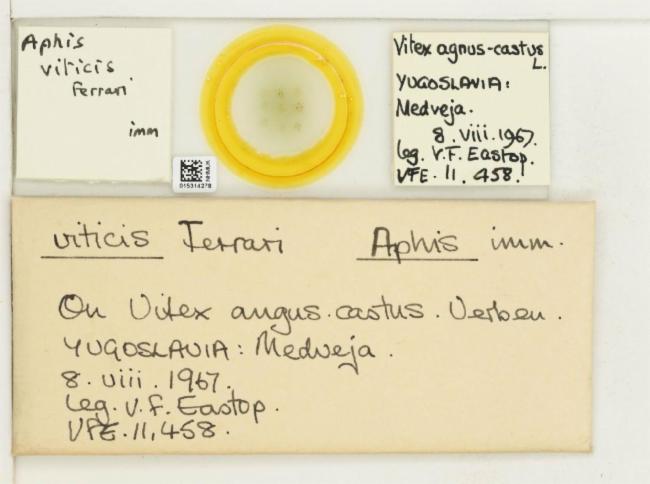 Aphis
viticis
Ferrari
imm
NHMUK
015314278
Vitex agnus-castus
L.
YUGOSLAVIA:
Medveja.
8. viii. 1967.
leg. V.F. Eastop.
VFE. 11, 458.
viticis Ferrari Aphis imm.
On Vitex angus.castus. Verben.
YUGOSLAVIA: Medveja.
8. viii. 1967.
leg. V.F. Eastop.
VFE. 11,458.